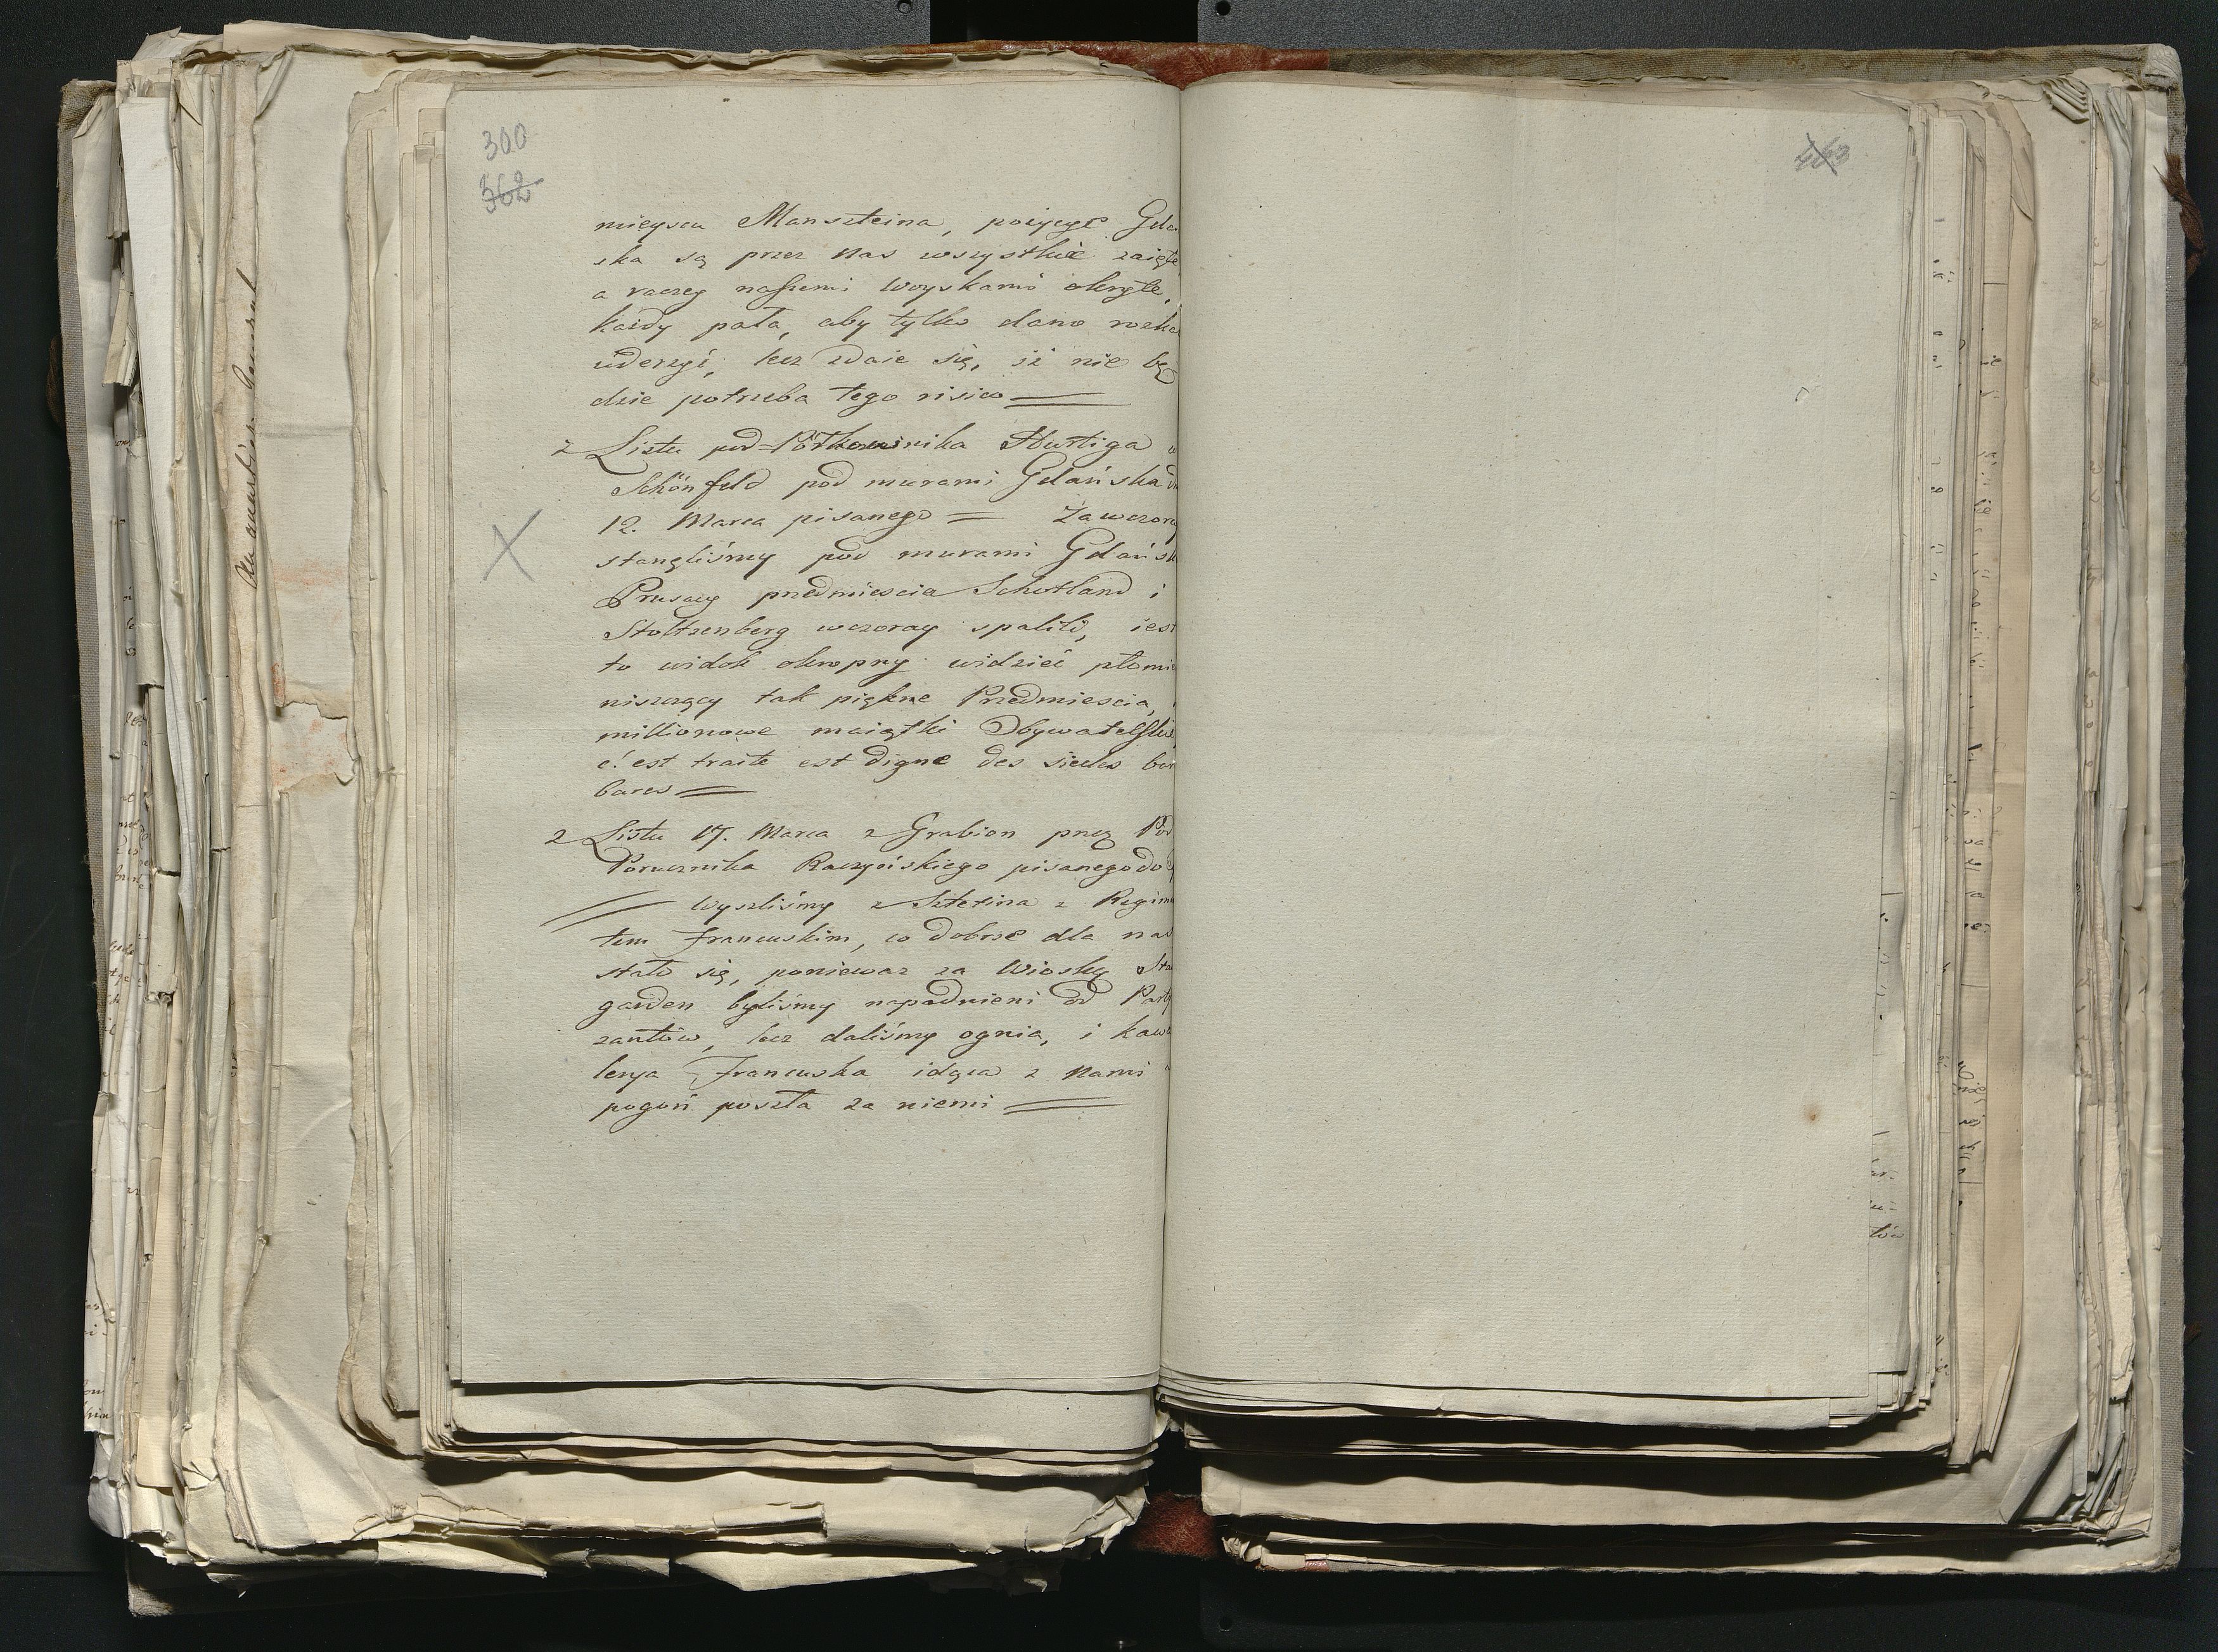 300
362
mieyscu Manszteina, pozycye Gda
ska są przez nas wszystkie zaięte
a raczey naszemi Woyskami okryte,
każdy pała, aby tylko dano rozka
uderzyć, lecz zdaie się, iż nie bę
dzie potrzeba tego risico
z Listu pod=Półkownika Hurtiga w
Schönfeld pod murami Gdańska d
12. Marca pisanego = Zawczoray
stanęliśmy pod murami Gdańsk
Prusacy przedmieścia Schotland i
Stoltzenberg wczoray spalili, iest
to widok okropny widzieć płomie
niszczący tak piękne Przedmieścia,
millionowe maiątki Obywatelskie,
c'est traite est digne des siecles bar
bares
z Listu 17. Marca z Grabion przez Pod
Porucznika Raczyńskiego pisanego do
Wyszliśmy z Sztetina z Regimen
tem francuskim, co dobrze dla nas
stało się, ponieważ za Wioską Sta
garden byliśmy napadnieni od Party
zantów, lecz daliśmy ognia, i kawa
lerya francuska idąca z nami w
pogoń poszła za niemi
463